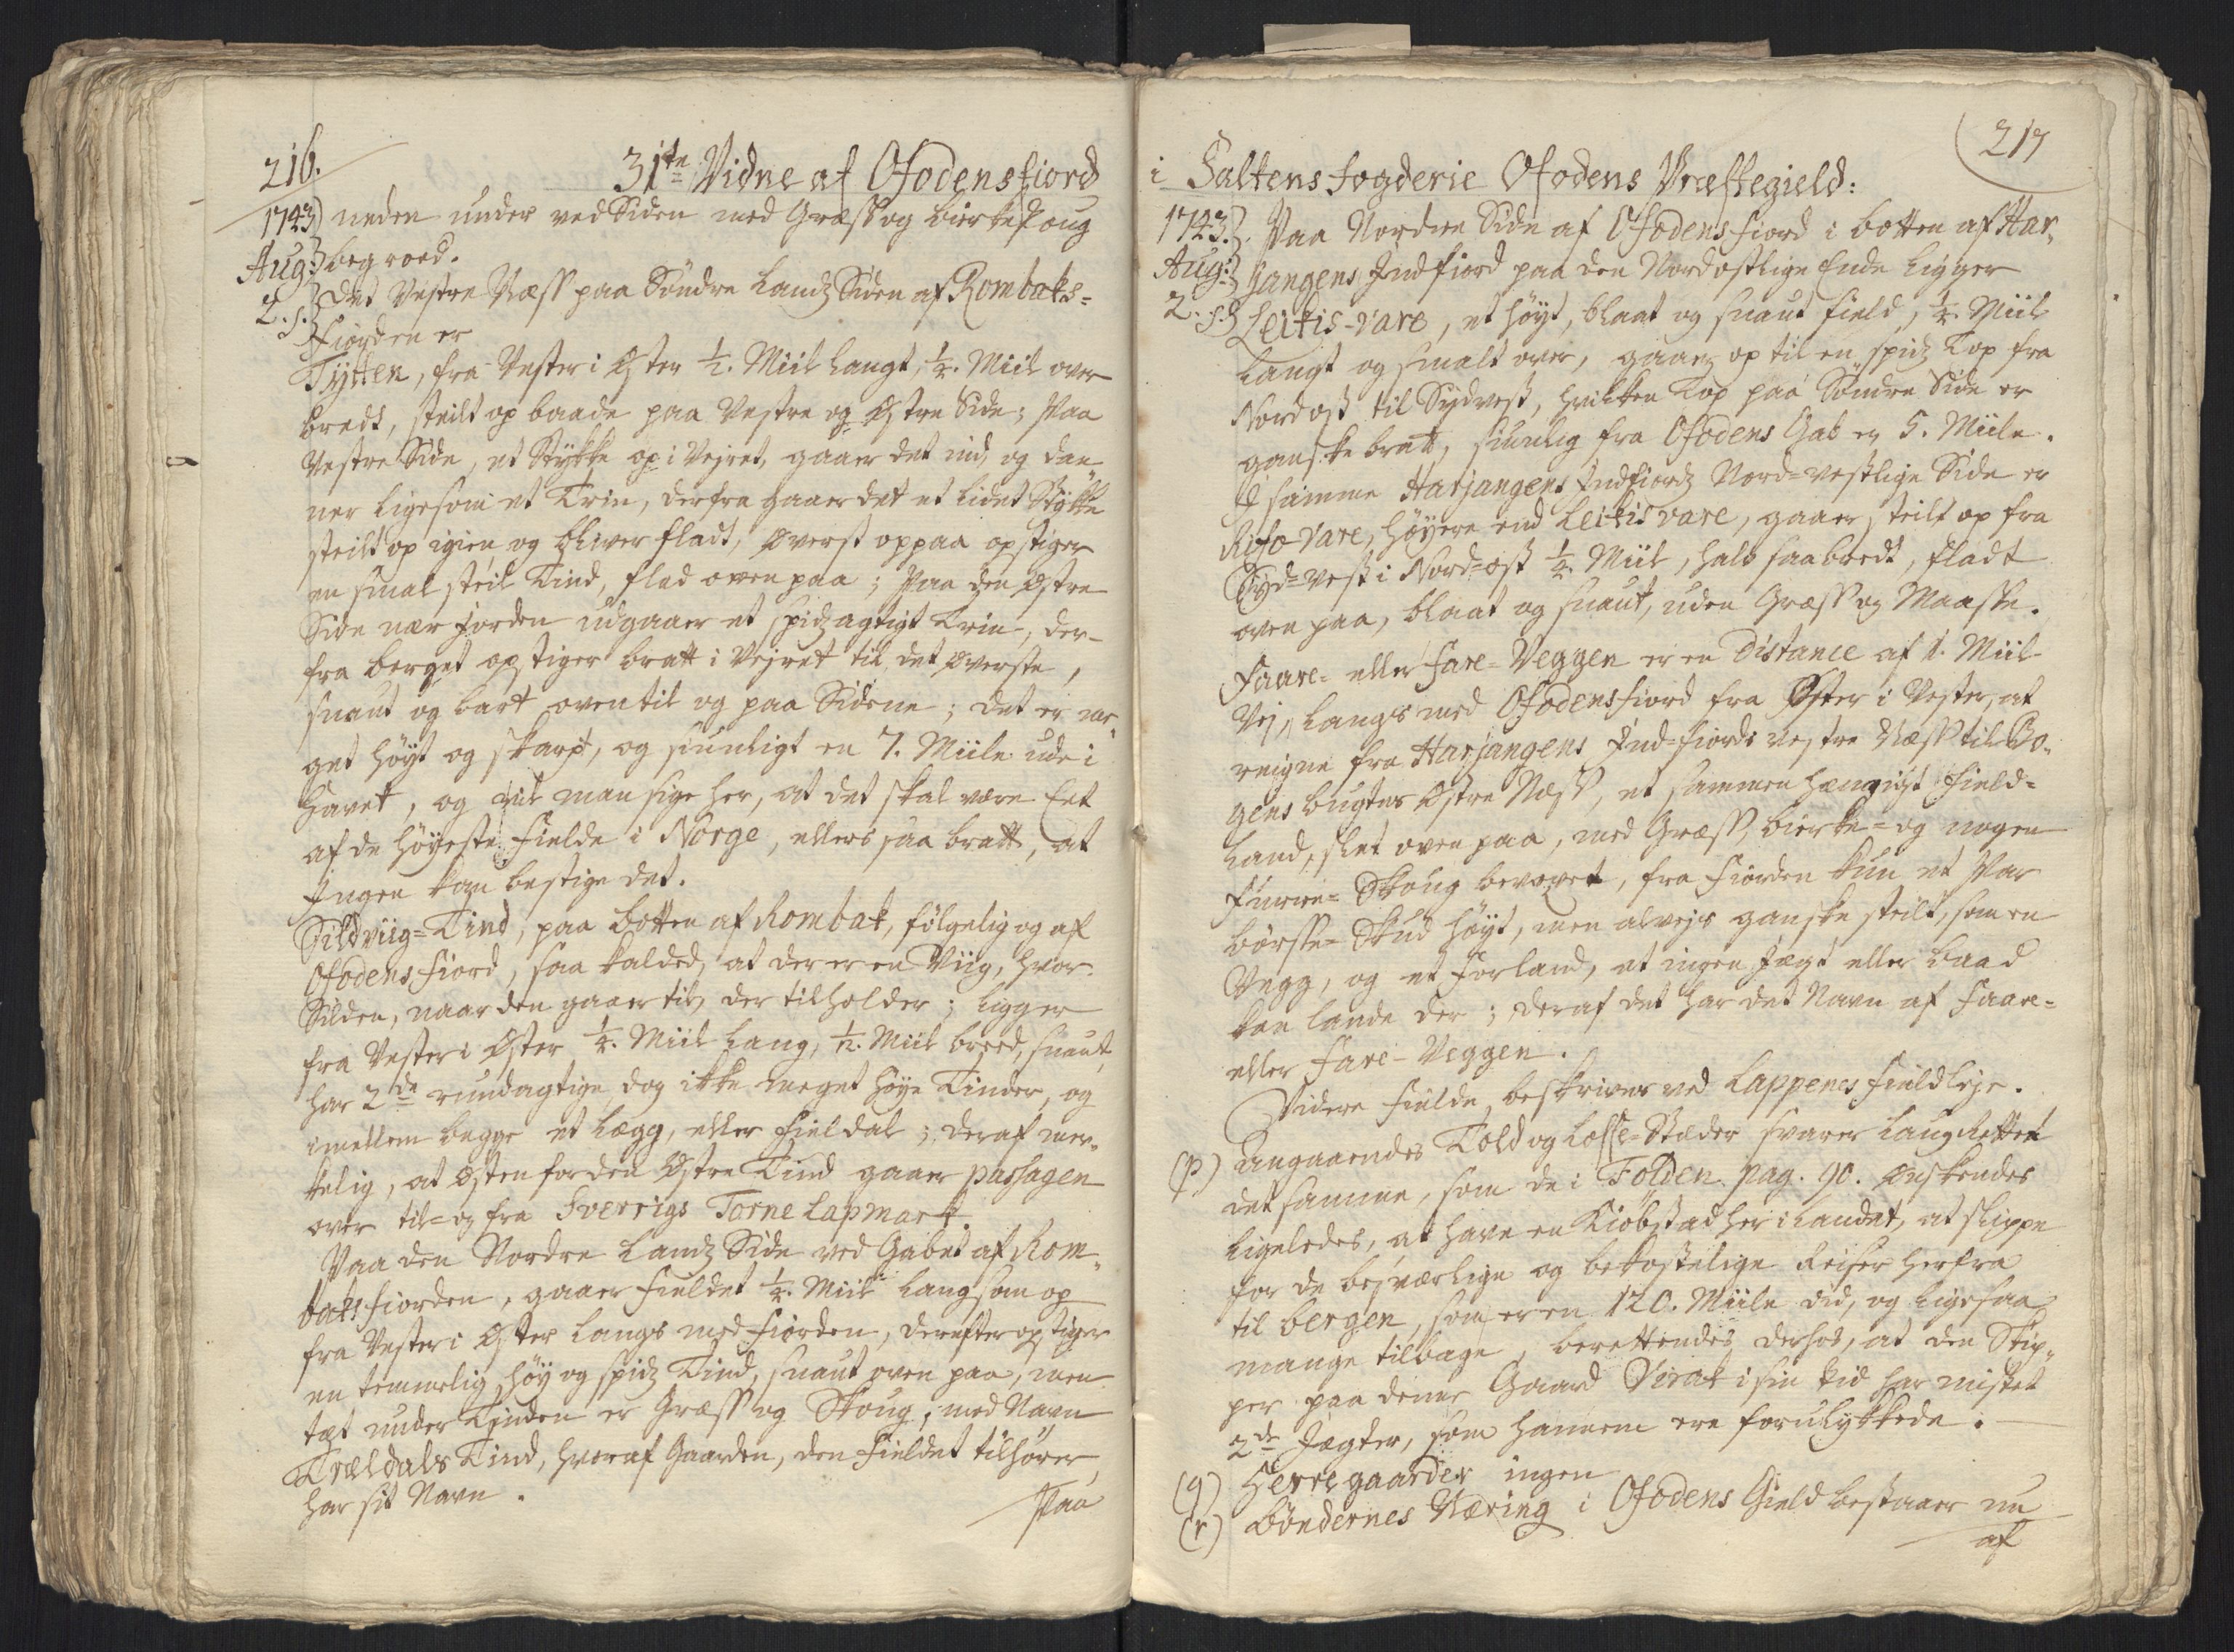 216.
31te Vidne af Ofodens fiord
1743 neden under ved Siden med Græss og birkeskoug
Aug: begroed.
2. s. Det Vestre Næss paa Søndre Landz Siden af Rombaks-
Fiorden er
Tytten, fra Vester i Øster ½. Miil langt, ¼. Miil over
bredt, steilt op baade paa Vestre og Østre Side; Paa
Vestre Side, et Stykke op i Vejret, gaaer det ind, og dan-
ner ligesom et Trin, derfra gaaer det et lidet Stykke
steilt op igien og bliver fladt, Øverst oppaa opstiger
en smal steil Tind, flad oven paa; Paa den Østre
Side nær Jorden udgaaer et spidzagtigt Trin, der-
fra berget opstiger bratt i Vejret til det Øverste,
snaut og bart oventil og paa Siderne; det er me-
get høyt og skarpt, og siunligt en 7. Miile ude i
Havet, og vil man sige her, at det skal være Eet
af de høyeste Fielde i Norge, ellers saa bratt, at
Ingen kan bestige det.
Sildviig-Tind, paa botten af Rombak, følgelig og af
Ofodens fiord, saa kalded, at der er en Viig, hvor
Silden, naar den gaaer til, der tilholder; ligger
fra Vester i Øster ¼. Miil lang, ½. Miil breed, snaut,
har 2de rundagtige, dog ikke meget høye Tinder, og
imellem begge et Lægg, eller Fieldal; deraf mer-
kelig, at Østen for den Østre Tind gaaer passagen
over til- og fra Sverrigs Torne Lapmark.
Paa den Nordre Landz Side ved Gabet af Rom-
baksfiorden, gaaer Fieldet ¼. Miil langsom op
fra Vester i Øster langs med Fiorden, derefter opstiger
en temmelig høy og spidz Tind, snaut oven paa, men
tæt under Tinden er Græss og Skoug, med Navn
Træeldals Tind, hvoraf Gaarden, den Fieldet tilhører,
har sit Navn.
Paa
217
i Saltens fogderie Ofodens Præstegield:
1743. Paa Nordre Side af Ofodens fiord i botten af Har-
Aug: jangens Indfiord paa den Nordostlige Ende ligger
2. s. Leikis-vare, et høyt, blaat og snaut field, ¼. Miil
langt og smalt over, gaaer op til en spidz Top fra
Nordost til Sydvest, hvilken Top paa Søndre Side er
ganske bratt, siunlig fra Ofodens Gab er 5. Miile.
I samme Harjangens Indfiordz Nord-vestlige Side er
Rifo-vare, høyere end Leikis vare, gaaer steilt op fra
Syd-vest i Nord-ost ¼. Miil, halv saa bredt, fladt
oven paa, blaat og snaut, uden Græss og Maasse.
Faare- eller fare-Veggen er en Distance af 1. Miil
Vej, langs med Ofodensfiord fra Øster i Vester, at
reigne fra Harjangens Ind-fiords vestre Næss til Bo-
gens bugtes Østre Næss, et sammenhængigt Field-
land, slet oven paa, med Græss, birke- og nogen
Furrue-Skoug bevoxet, fra Fiorden kun et Par
børsse-Skud høyt, men alvejs ganske steilt, som en
Vegg, og et Forland, at ingen Jægt eller baad
kan lande der; deraf det har det Navn af Faare-
eller Fare-Veggen.
Videre Fielde beskrives ved Lappenes Fieldleje.
(p) Angaaendes Told og Losse-Stæder svarer Laug Retten
det samme, som de i Folden pag. 90. Ønskendes
ligeledes, at have en Kiøbstad her i Landet, at slippe
for de besværlige og bekostelige Reiser herfra
til bergen, som er en 120. Miile did, og ligesaa
mange tilbage, berettendes derhos, at den Skip-
per paa denne Gaard Virak i sin tid har mistet
2de Jægter, som hannem ere forulykkede.
(q) Herregaarder ingen
(r) Bøndernes Næring i Ofodens Gield bestaaer nu
af